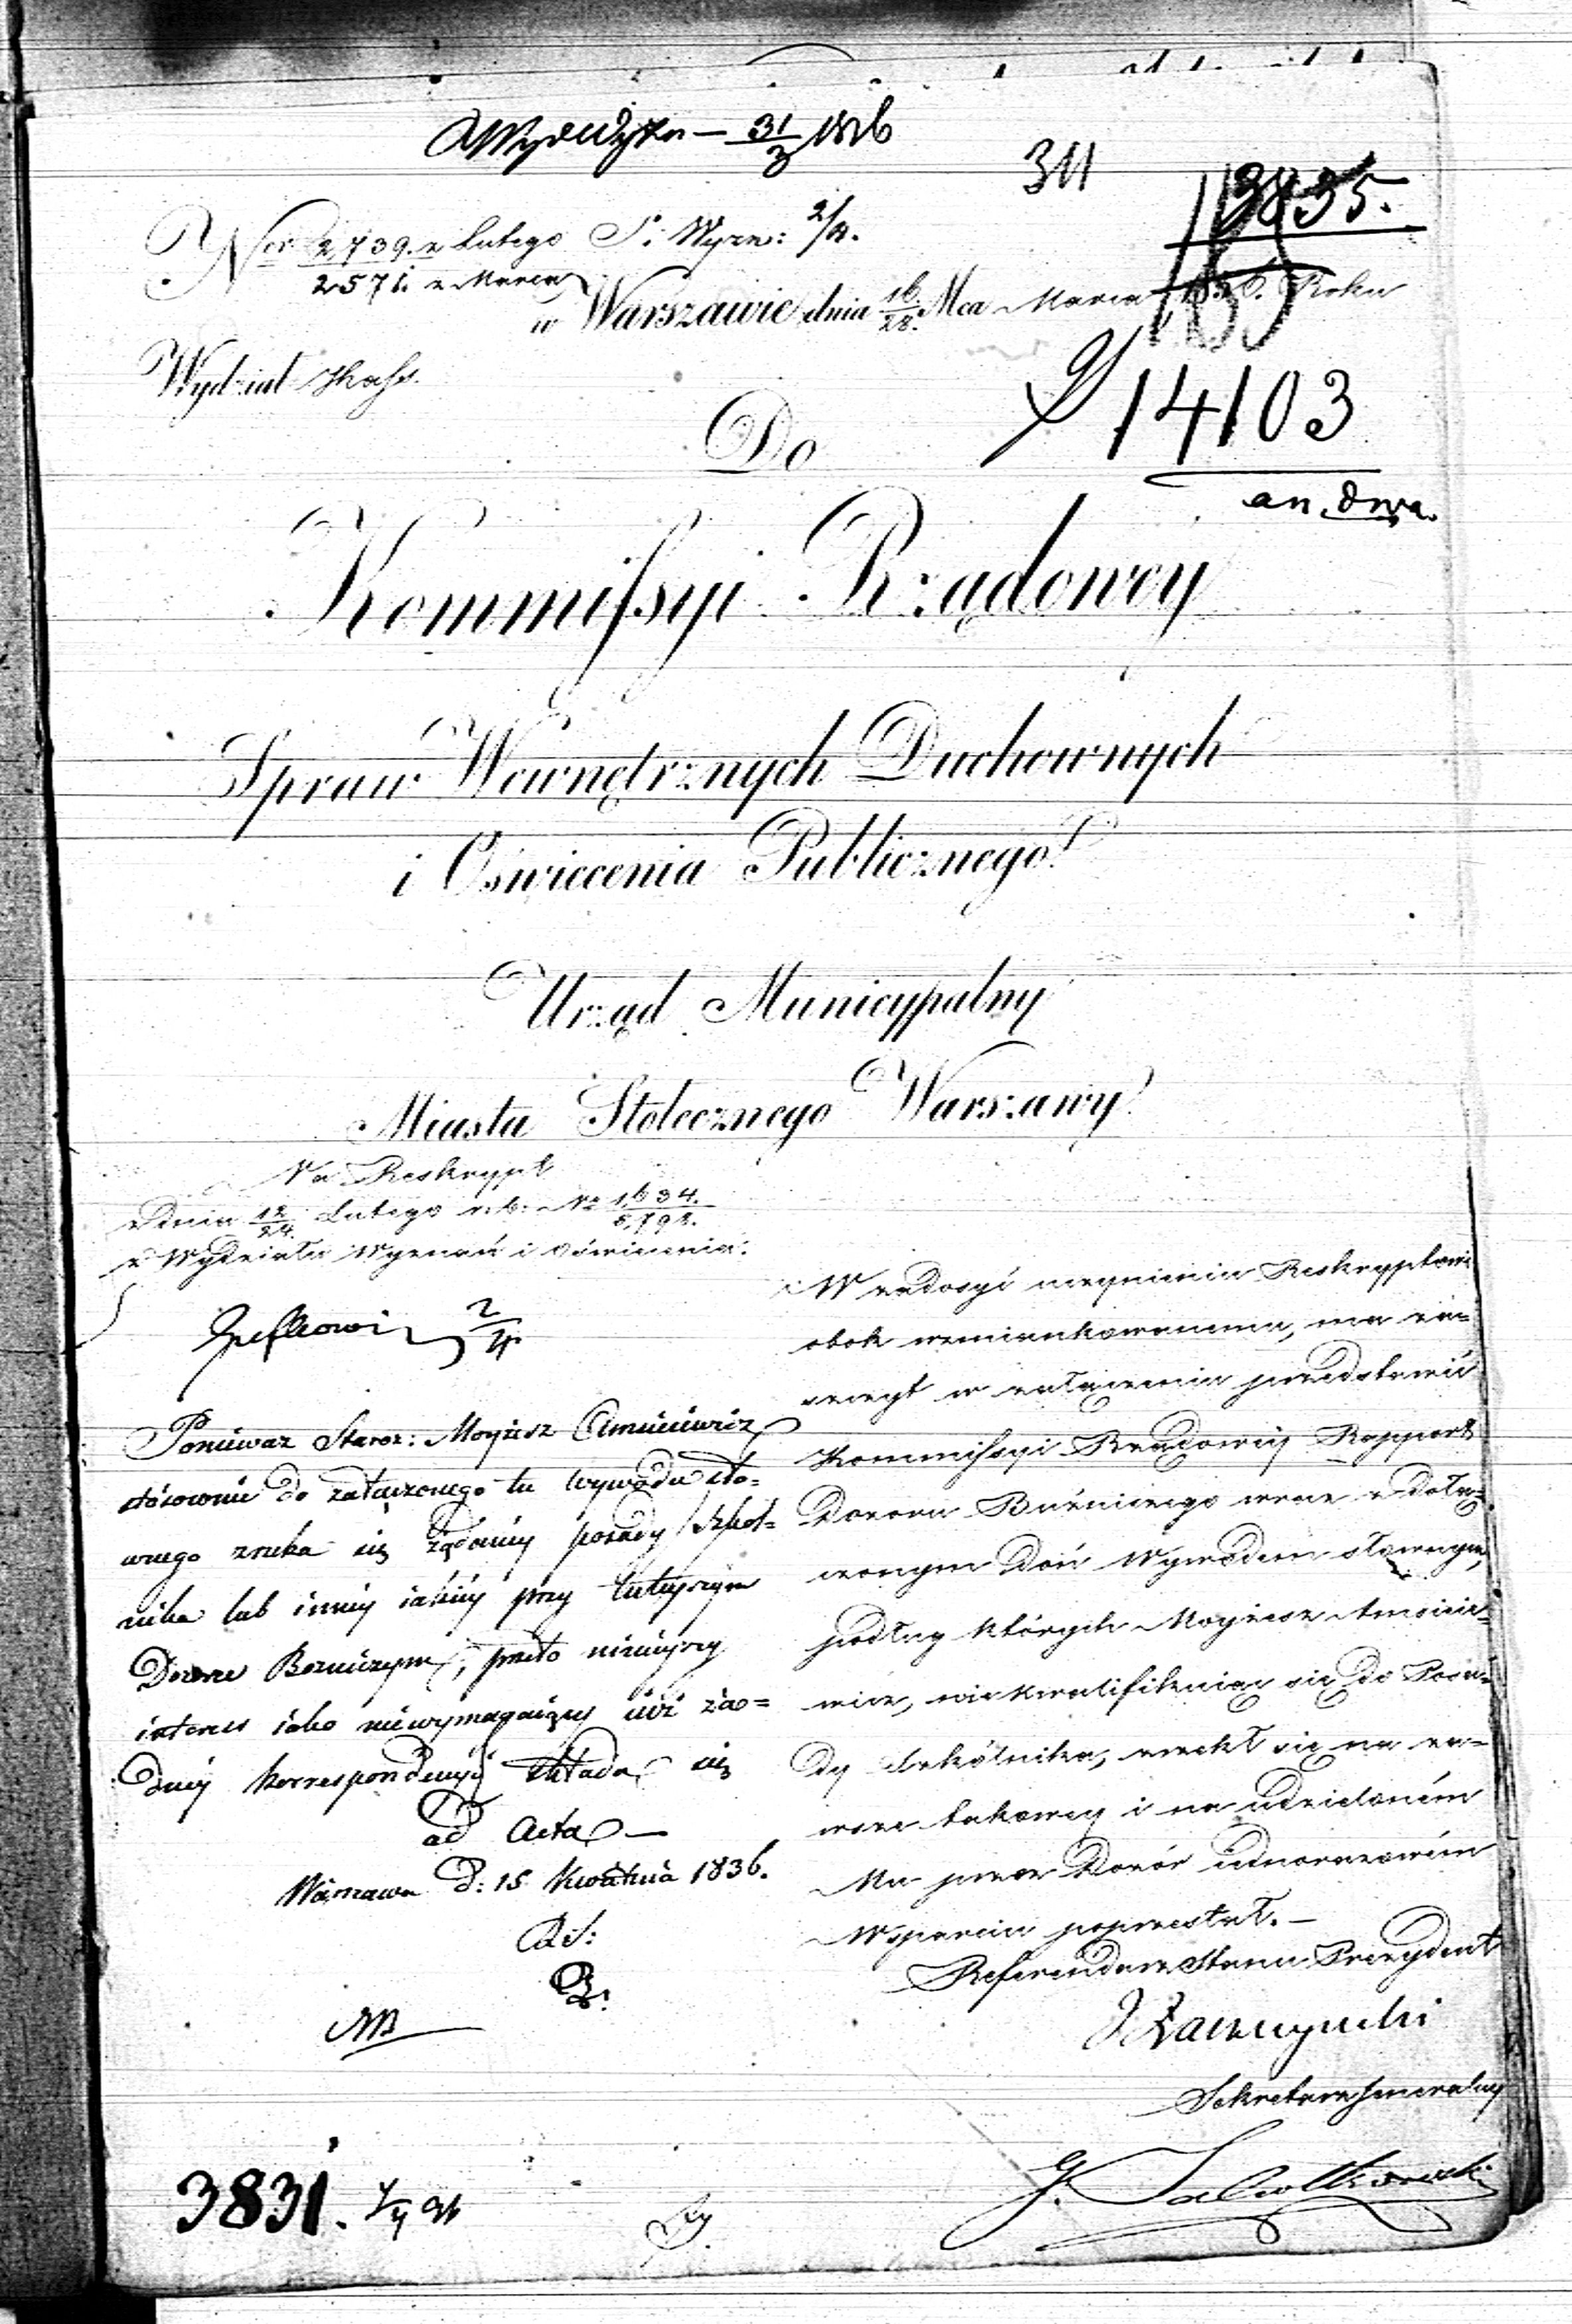 31/3 1836
311
3835.
Ner 2739. z Lutego S: Wyzn: 2/4.
2571. z Marca
w Warszawie dnia 16/28. Mca Marca 1836. Roku
Wydział Skarb.
14103
Do
Kommissyi Rządowey
Spraw Wewnętrznych Duchownych
i Oświecenia Publicznego
Urząd Municypalny
Miasta Stołecznego Warszawy
Na Reskrypt
z Dnia 12/24. Lutego r. b: No 1,634./5,792.
z Wydziału Wyznań i Oświecenia.
2/4
Ponieważ Staroz: Moyżesz
stósownie do załączonego tu wywodu sło=
wnego zrzeka się żądaney posady Szkol=
nika lub inney iakiey przy tuteyszym
Dozorze Bożniczym; przeto ninieyszy
interess iako niewymagaiący iuż ża=
dney korrespondencyi składa się
ad Acta —
Warszawa D: 15 Kwietnia 1836.
W zadosyć uczynieniu Reskryptowi
obok wzmiankowanemu, ma za=
szczyt w załączeniu przedstawić
Kommissyi Rządowey Rapport
Dozoru Bużniczego wraz z dołą=
czonym Doń Wywodem słownym,
podług których Moyżesz
nie kwalifikuiąc się do Posa=
dy Szkólnika, zrzekł się na za=
wsze takowey i na udzieloném
Mu przez Dozór iednorazowém
Wsparciu poprzestał. —
Referendarz Stanu Prezydent
Sekretarz Jeneralny
G.
3831. 4/4 36